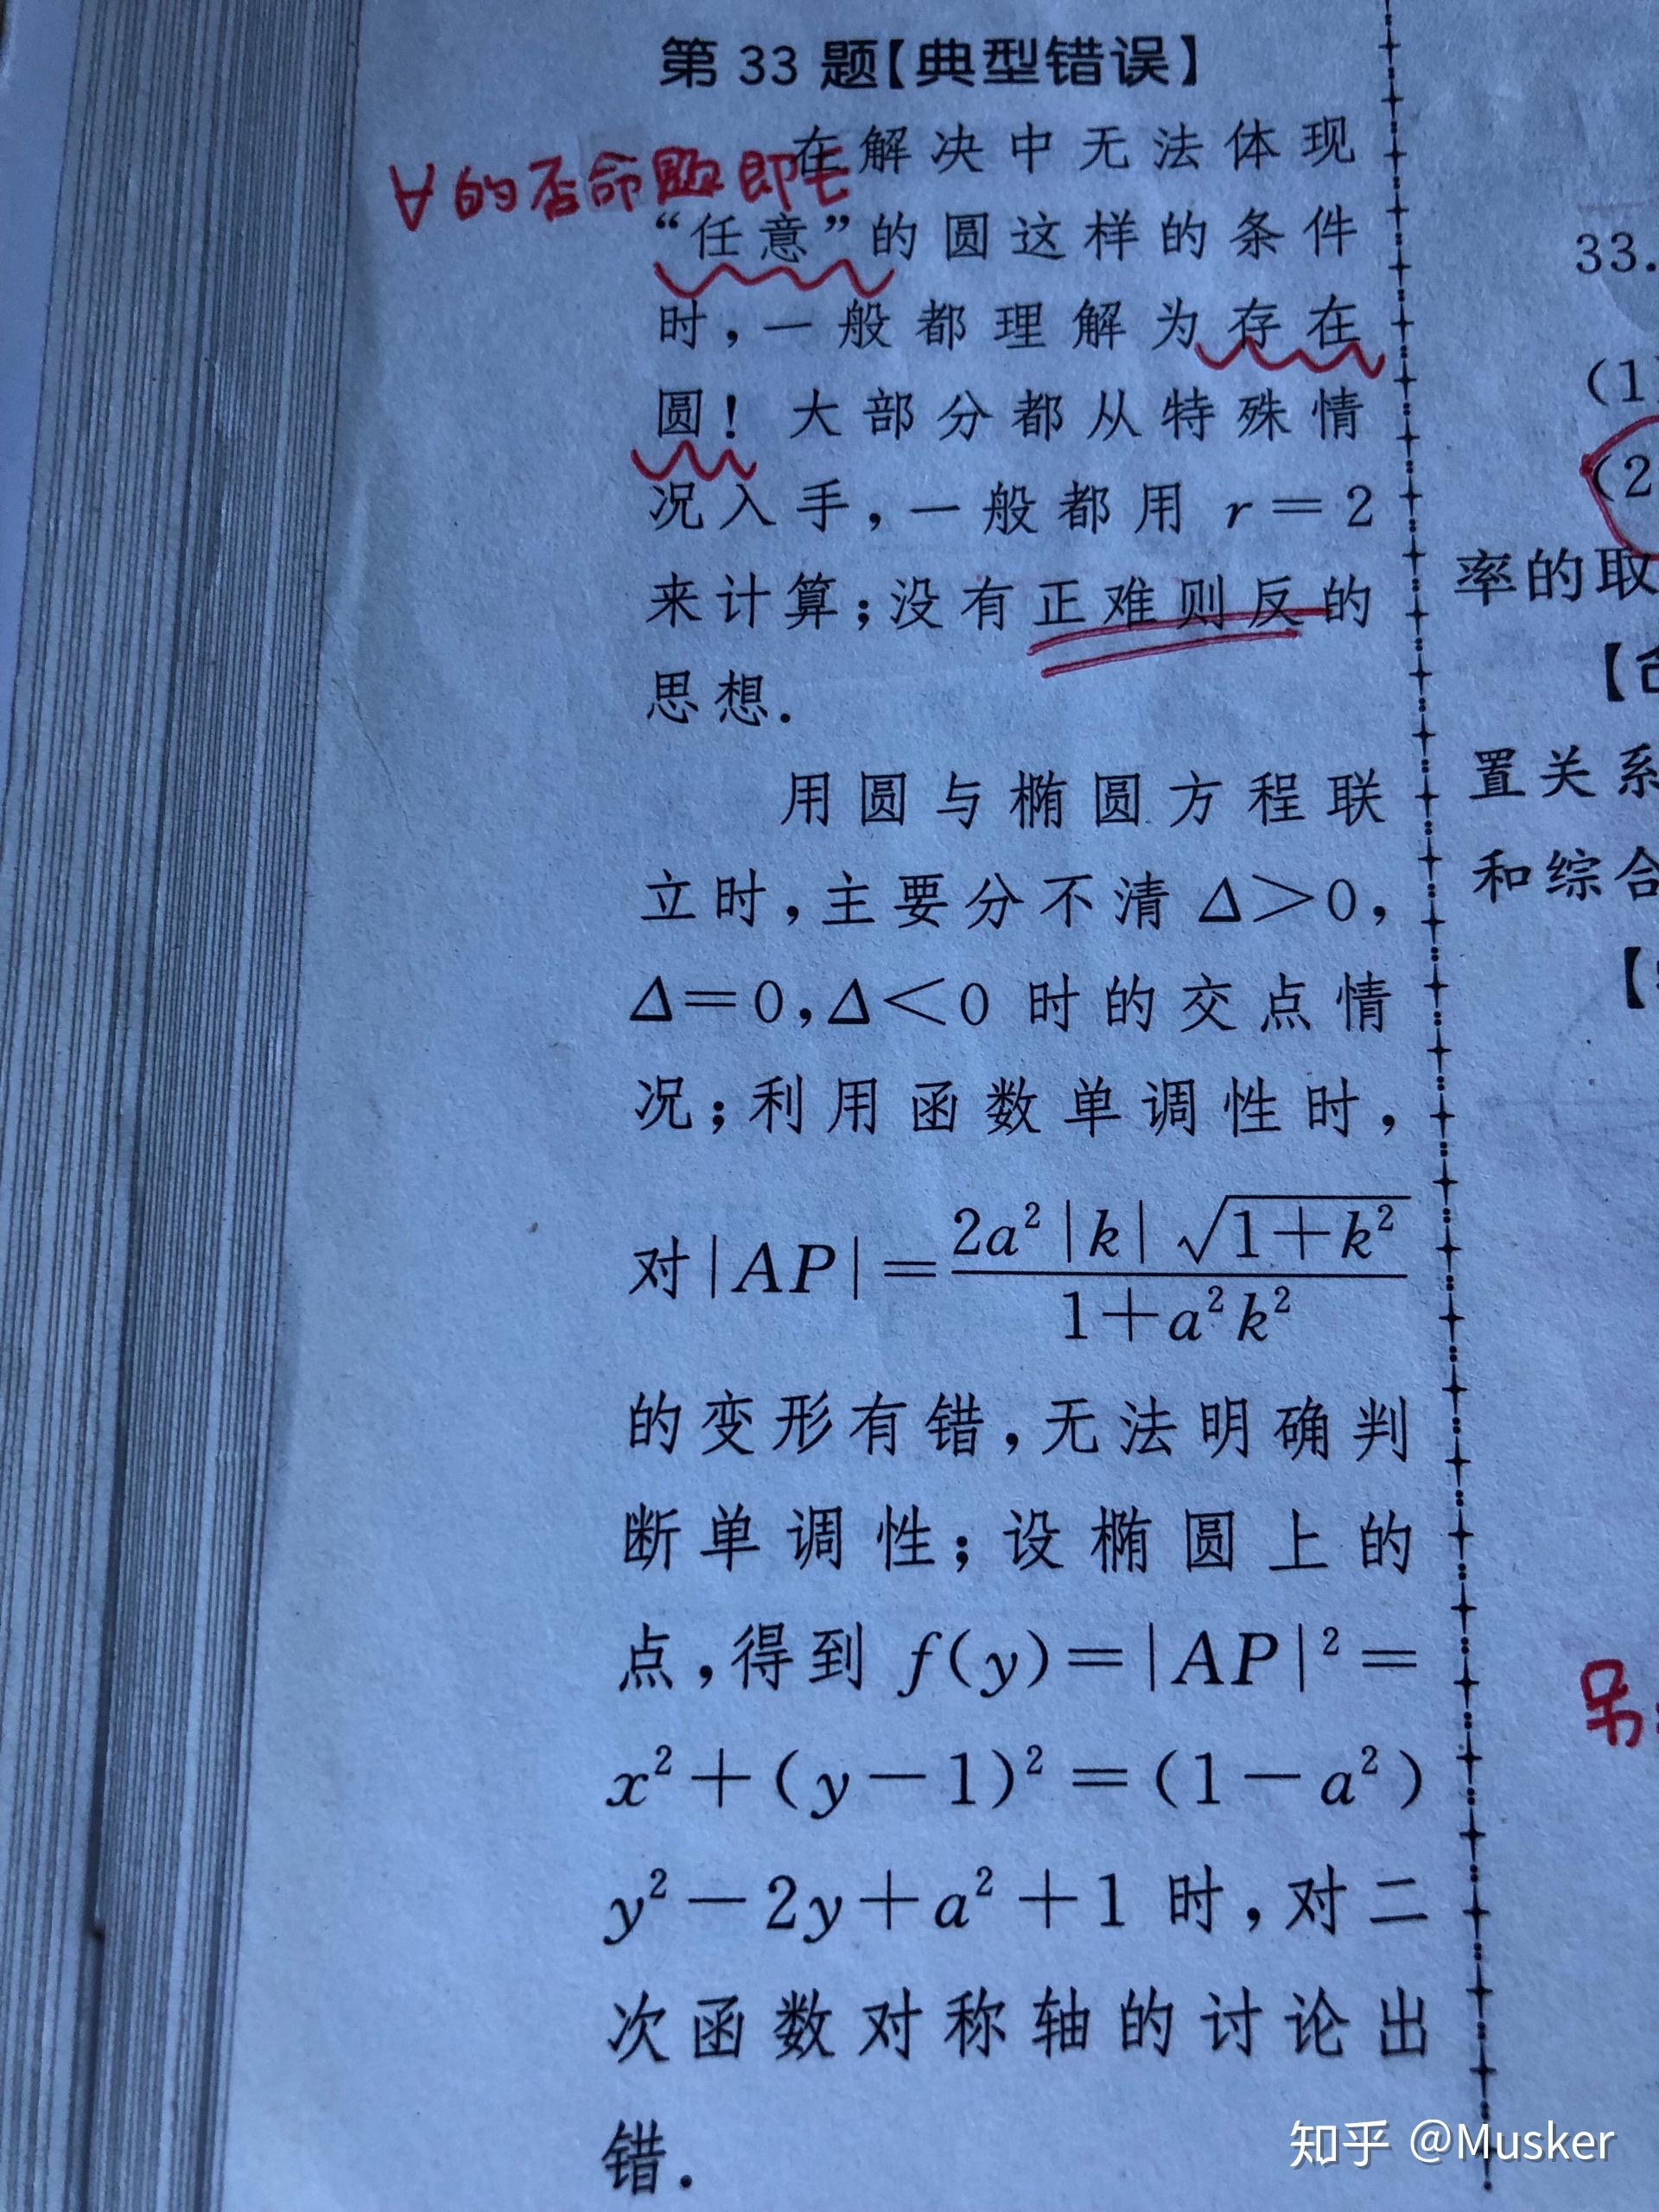 第 33 题【典型错误】
∀的否命题即∃
在解决中无法体现
“任意”的圆这样的条件
时,一般都理解为存在
圆!大部分都从特殊情
况入手,一般都用 r=2
来计算;没有正难则反的
思想.
用圆与椭圆方程联
立时,主要分不清 Δ>0,
Δ=0,Δ<0 时的交点情
况;利用函数单调性时,
对|AP|=2a²|k|√1+k²/1+a²k²
的变形有错,无法明确判
断单调性;设椭圆上的
点,得到 f(y)=|AP|²=
x²+(y-1)²=(1-a²)
y²-2y+a²+1 时,对二
次函数对称轴的讨论出
错.
33.
(1
(2
率的取
置关系
和综合
知乎 @Musker